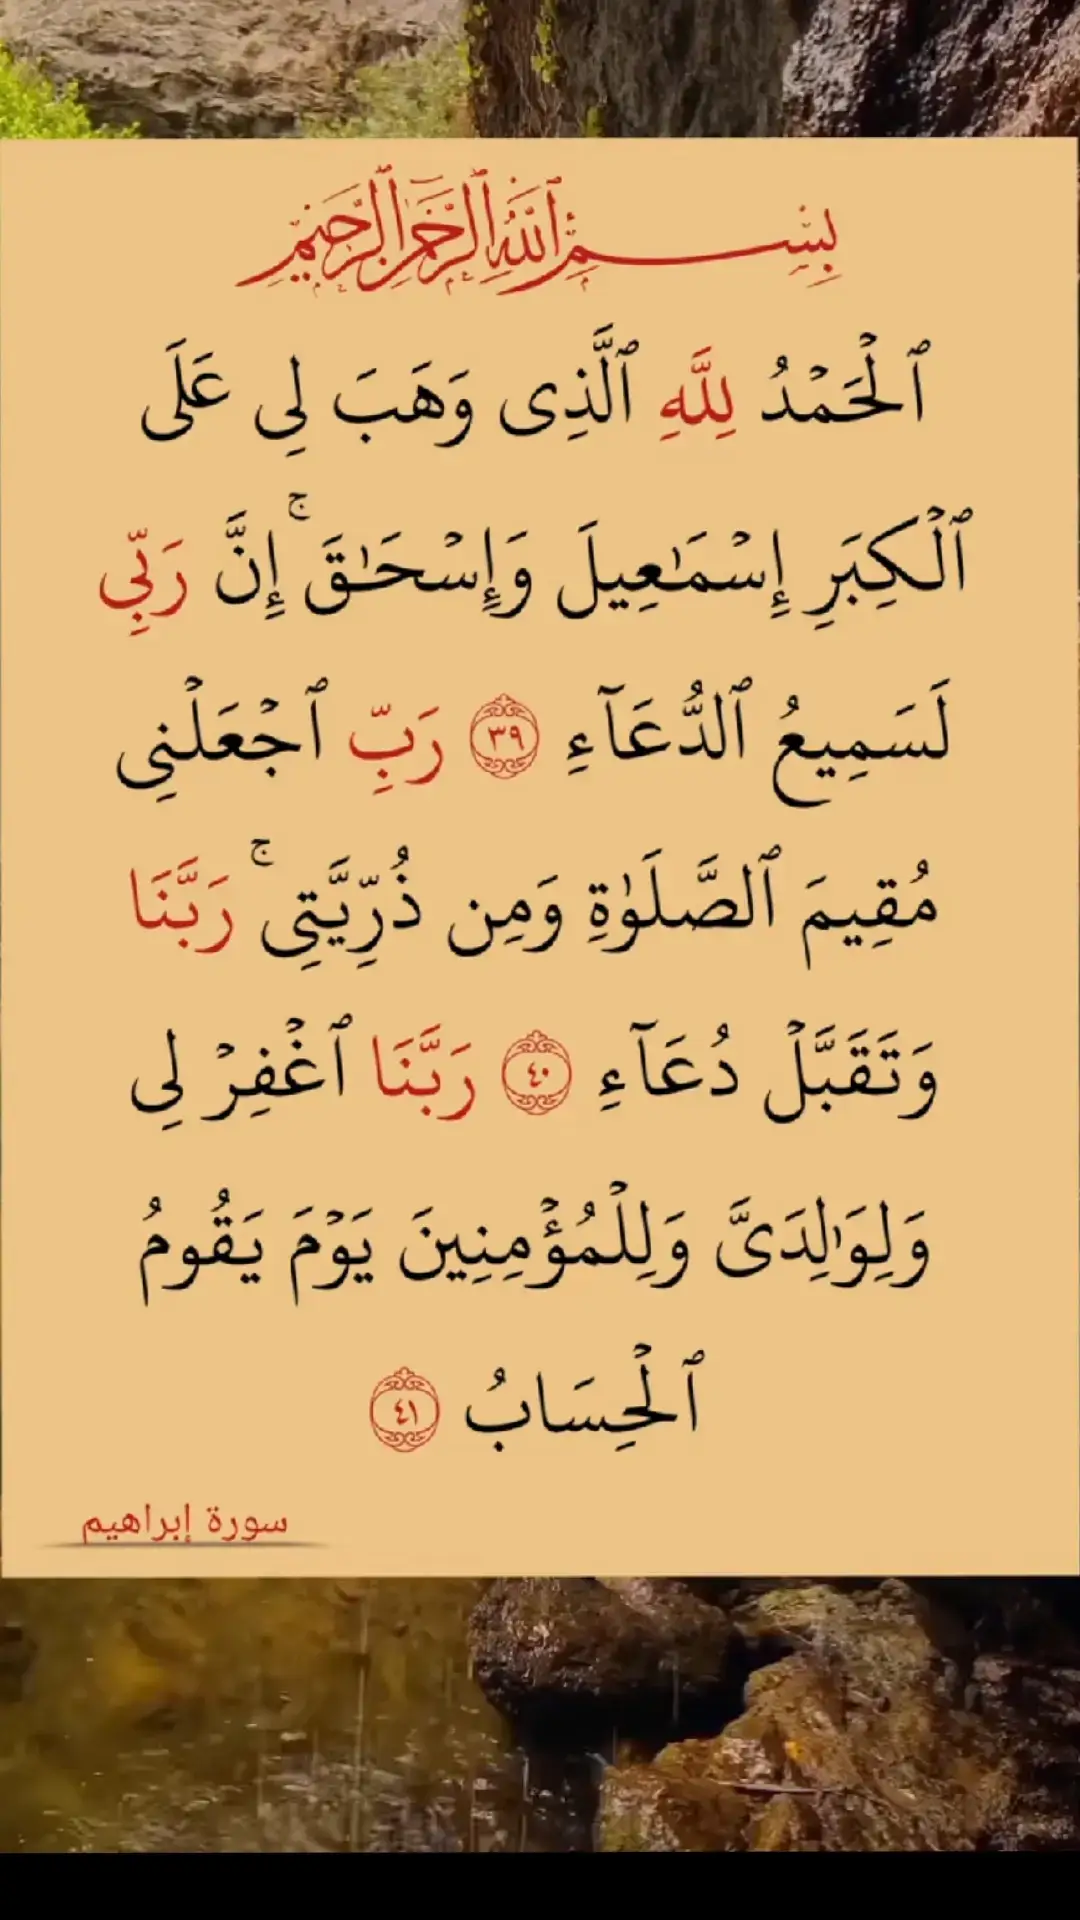 بِسْمِ ٱللَّهِ ٱلرَّحْمَٰنِ ٱلرَّحِيمِ
ٱلْحَمْدُ لِلَّهِ ٱلَّذِى وَهَبَ لِى عَلَى
ٱلْكِبَرِ إِسْمَٰعِيلَ وَإِسْحَٰقَ ۚ إِنَّ رَبِّى
لَسَمِيعُ ٱلدُّعَآءِ ٣٩ رَبِّ ٱجْعَلْنِى
مُقِيمَ ٱلصَّلَوٰةِ وَمِن ذُرِّيَّتِى ۚ رَبَّنَا
وَتَقَبَّلْ دُعَآءِ ٤٠ رَبَّنَا ٱغْفِرْ لِى
وَلِوَٰلِدَىَّ وَلِلْمُؤْمِنِينَ يَوْمَ يَقُومُ
ٱلْحِسَابُ ٤١
سورة إبراهيم